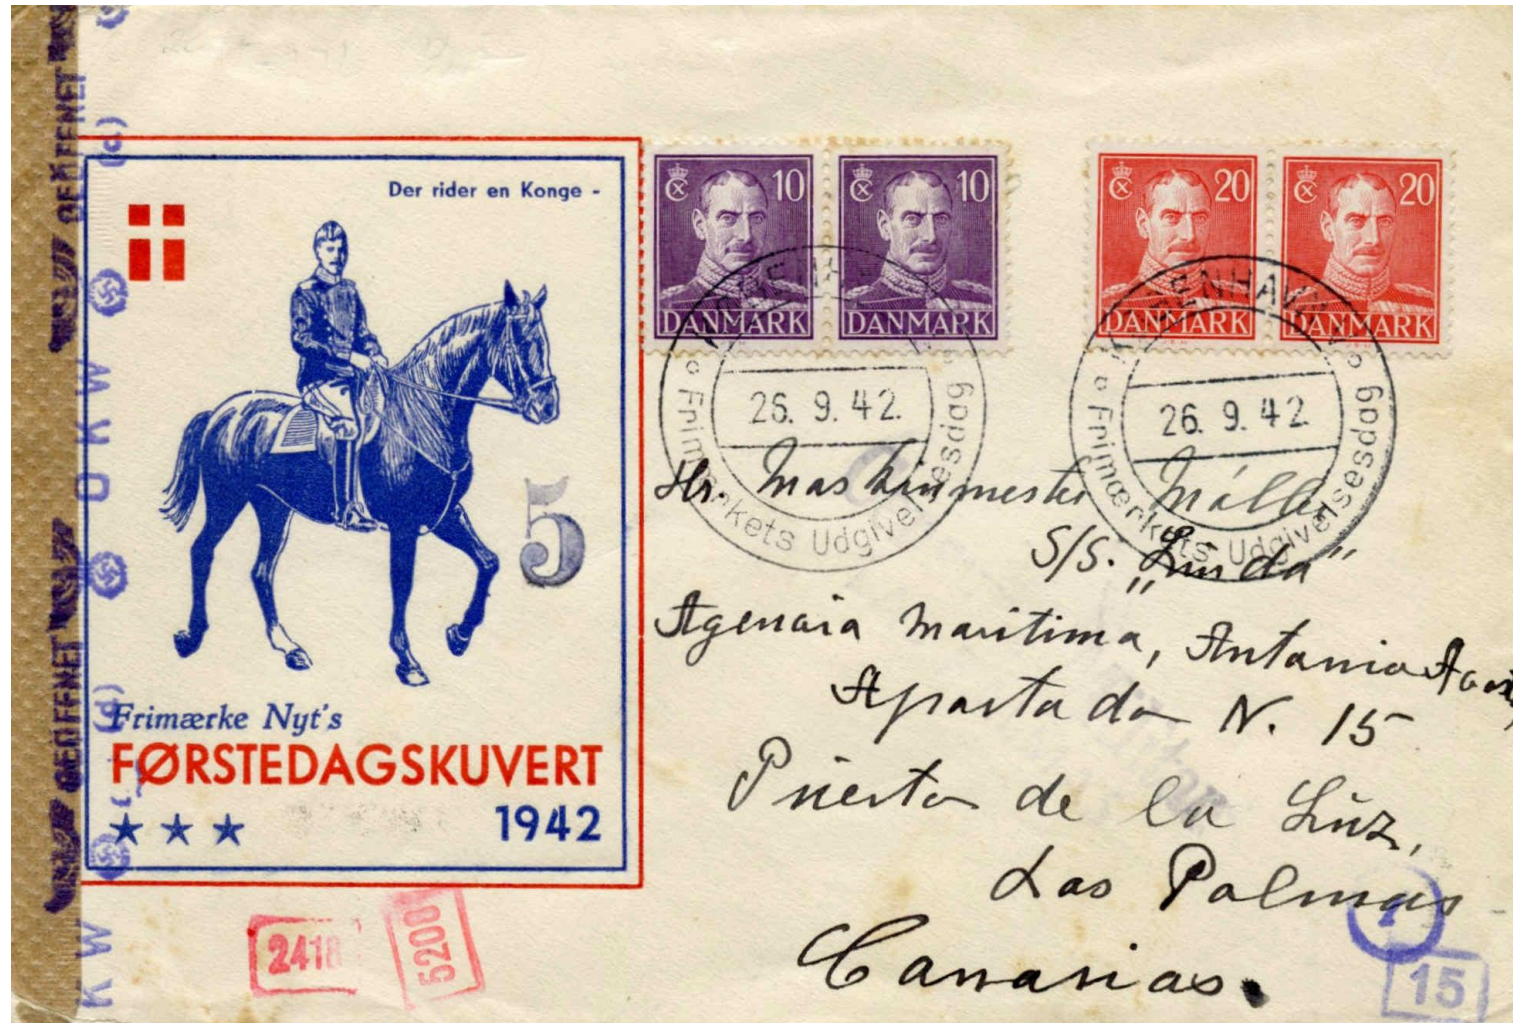 GEÖFFNET
GEÖFFNET
O K W
(d)
K W
(d)
Der rider en Konge -
5
Frimærke Nyt's
FØRSTEDAGSKUVERT
1942
10
DANMARK
10
DANMARK
20
DANMARK
20
DANMARK
26. 9. 42.
Frimærkets Udgivelsesdag
KØBENHAVN
26. 9. 42.
Frimærkets Udgivelsesdag
Hr. Maskinmester Möller
S/S. „Linda"
Agencia Maritima, Antonio
Apartado N. 15
Puerto de la Luz,
Las Palmas
Canarias.
2418
5208
15